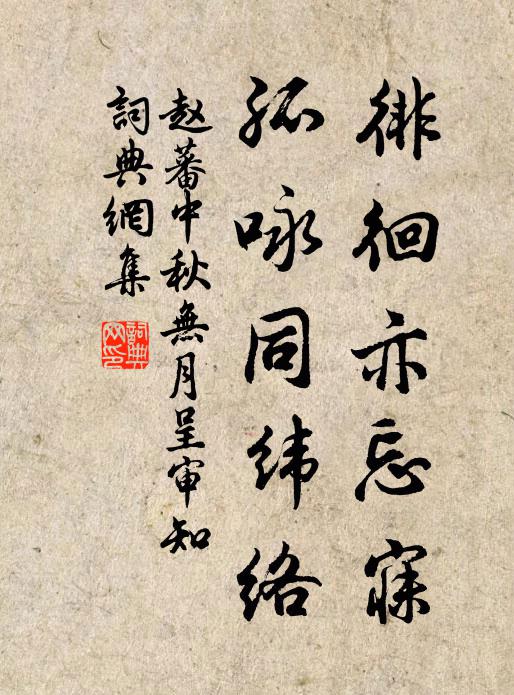 徘徊亦忘寐
孤咏同纬络
赵蕃中秋無月呈审知
詞典網集
詞典网印